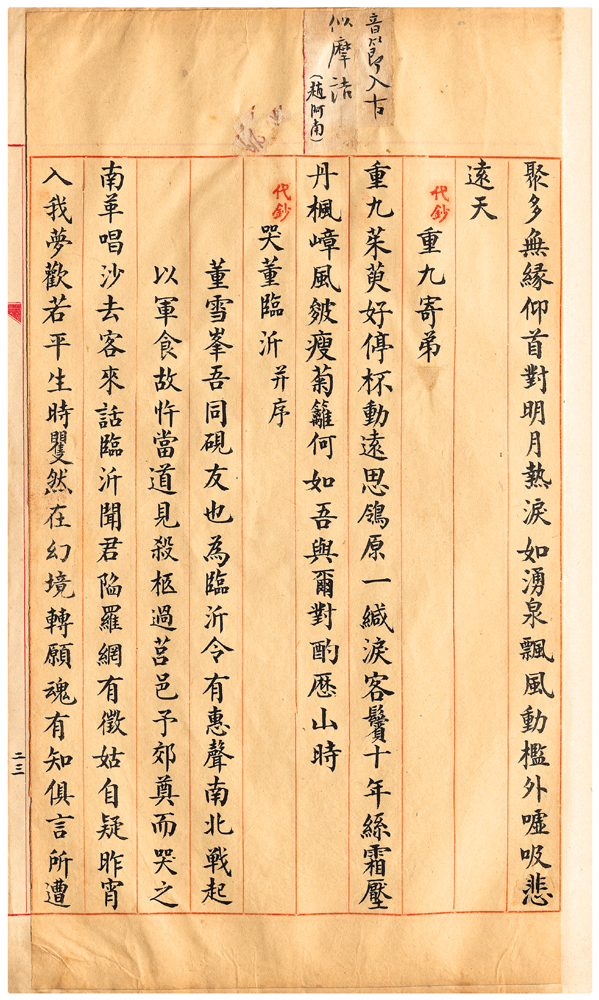 音節入古
似摩詰
(趙阿南)
聚多無緣仰首對明月熱淚如湧泉飄風動檻外噓吸悲
遠天
代鈔
重九寄弟
重九茱萸好停杯動遠思鴒原一緘淚客鬢十年絲霜壓
丹楓嶂風皴瘦菊籬何如吾與爾對酌歷山時
代鈔
哭董臨沂并序
董雪峯吾同硯友也為臨沂令有惠聲南北戰起
以軍食故忤當道見殺柩過莒邑予郊奠而哭之
南革唱沙去客來話臨沂聞君陷羅網有徵姑自疑昨宵
入我夢歡若平生時瞿然在幻境轉願魂有知俱言所遭
二三